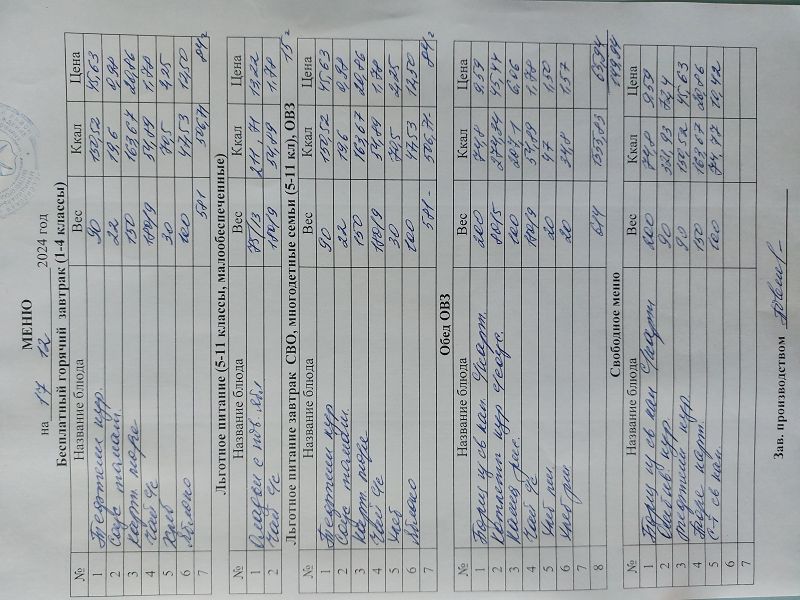 МЕНЮ
на 17 12 2024 год
Бесплатный горячий завтрак (1-4 классы)
№ Название блюда Вес Ккал Цена
1 Тефтели кур. 90 150,52 45,63
2 Соус томат. 22 19,6 0,98
3 карт пюре 150 163,67 20,86
4 Чай с/с 180/9 54,89 1,78
5 Хлеб 30 70,5 2,25
6 Яблоко 100 47,53 12,50
7 581 506,71 84=
Льготное питание (5-11 классы, малообеспеченные)
№ Название блюда Вес Ккал Цена
1 Оладьи с пов. ябл 75/13 211,71 13,22
2 Чай с/с 180/9 54,89 1,78
15=
Льготное питание завтрак СВО, многодетные семьи (5-11 кл), ОВЗ
№ Название блюда Вес Ккал Цена
1 Тефтели кур 90 150,52 45,63
2 Соус томат. 22 19,6 0,98
3 карт пюре 150 163,67 20,86
4 Чай с/с 180/9 54,89 1,78
5 Хлеб 30 70,5 2,25
6 Яблоко 100 47,53 12,50
7 581- 506,71- 84=
Обед ОВЗ
№ Название блюда Вес Ккал Цена
1 Борщ из св кап. 200 74,8 9,59
2 Котлета кур 45,44
3 Каша рис. 100 207,1 6,06
4 Чай с/с 180/9 54,89 1,78
5 Хлеб пш 20 47 1,50
6 Хлеб рж 20 34,8 1,57
7
8 614
Свободное меню
№ Название блюда Вес Ккал Цена
1 Борщ из св кап 200 74,8 9,59
2 кур. 90
3 Тефтели кур. 90 150,52 45,63
4 Пюре карт. 150 163,67 20,86
5 св кап. 100 74,77 10,42
6
7
Зав. производством